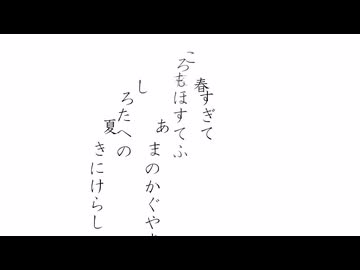 春すぎて
ころもほすてふ
あまのかぐや
しろたへの
夏きにけらし